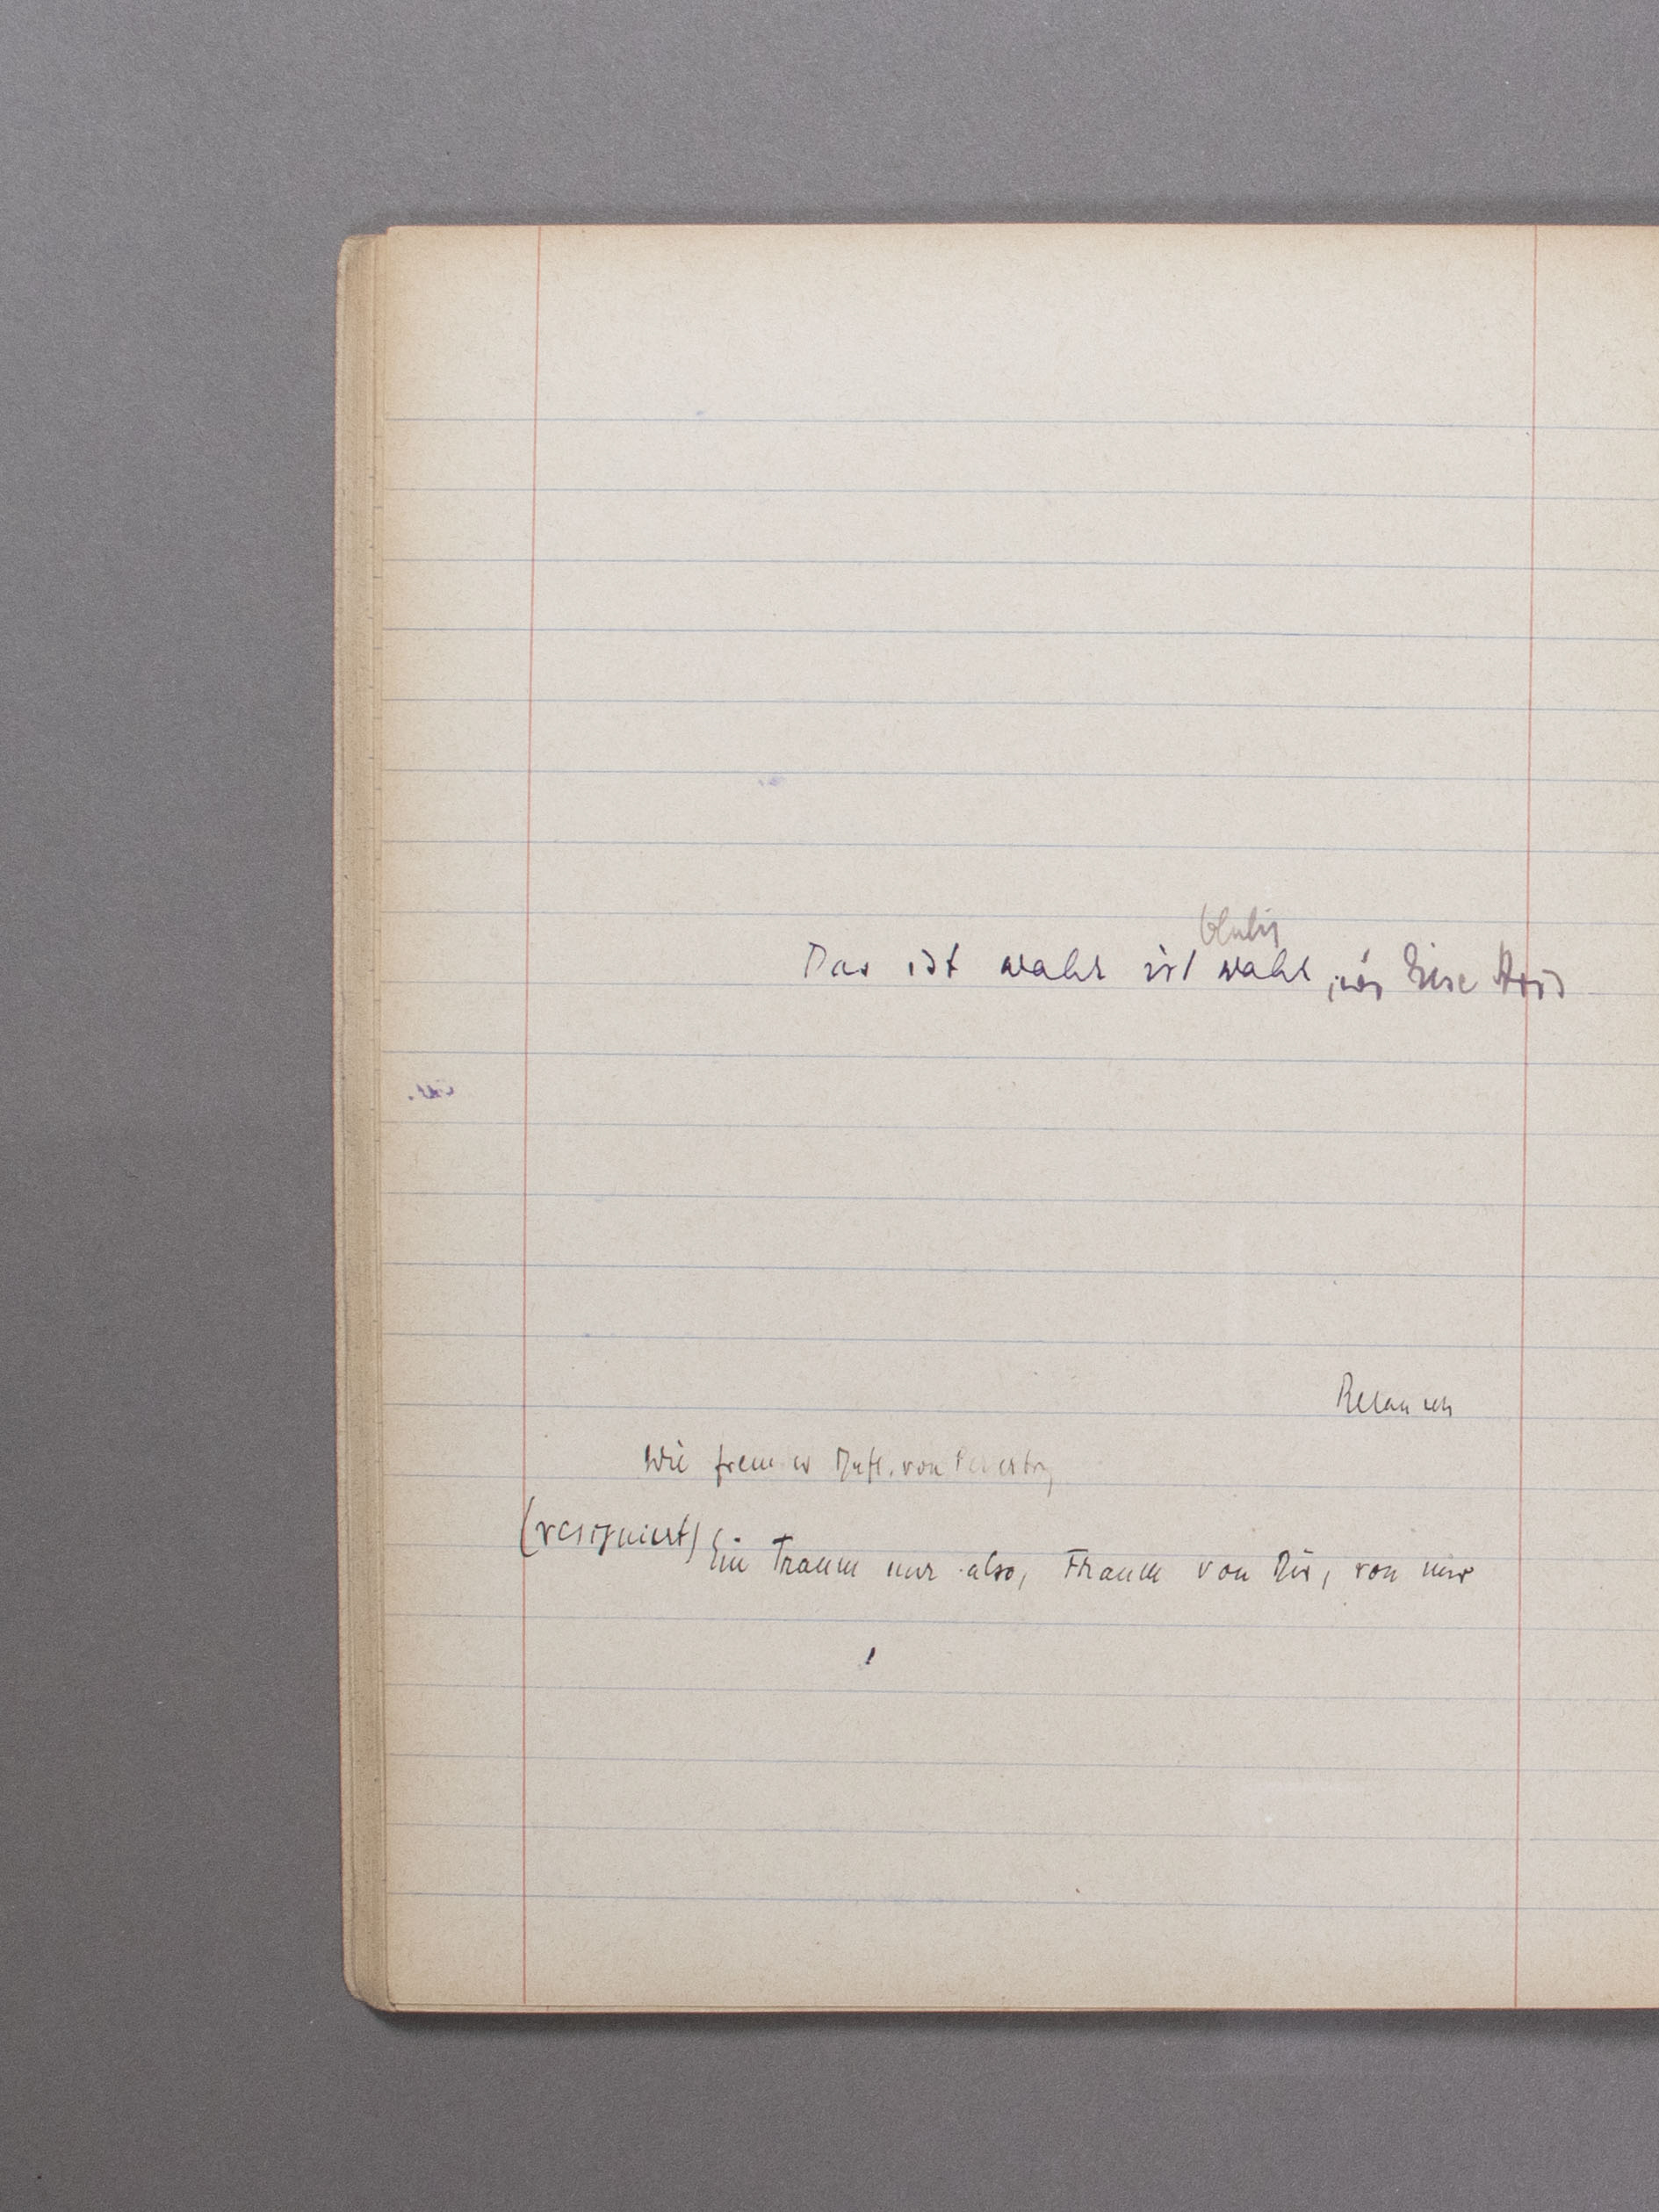 blutig
Das ist wahr ist wahr, wie diese
Wie fremder Duft, von
(resigniert) Ein Traum nur also, Traum von Dir, von mir